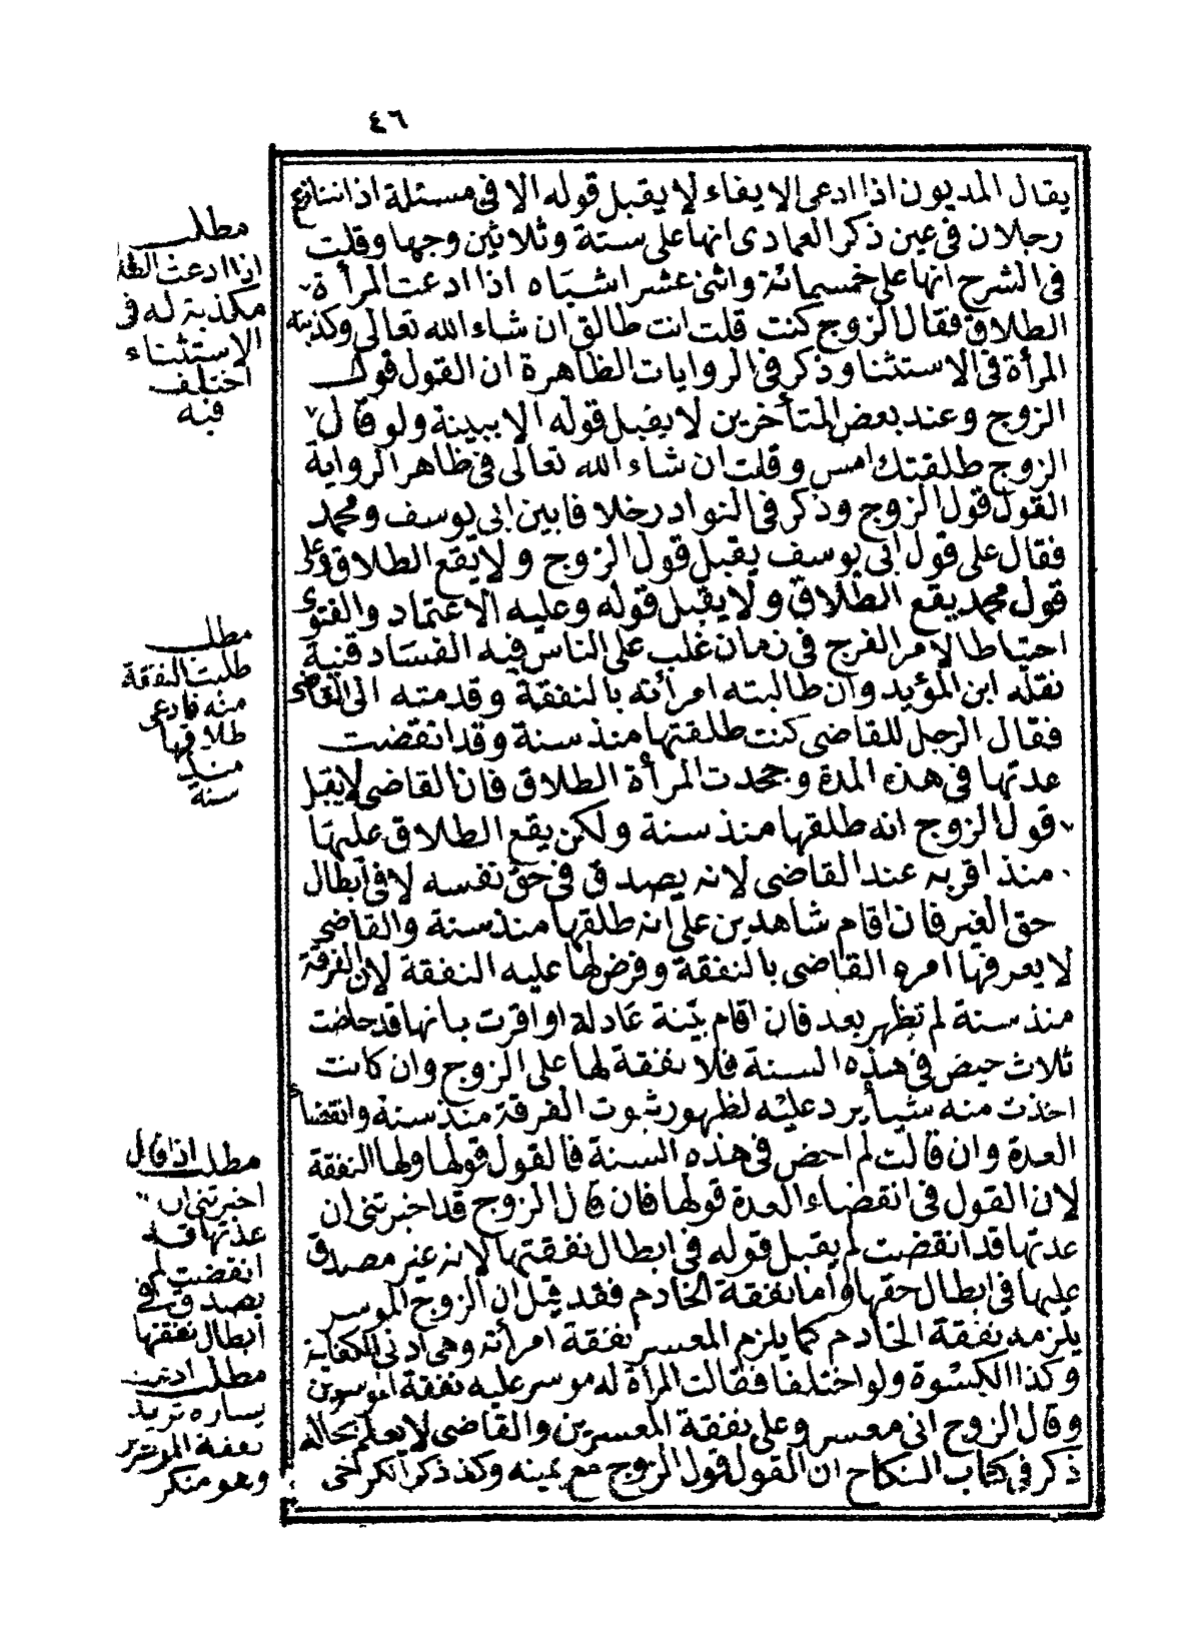 ٤٦
يقال المديون اذا ادعى الايفاء لا يقبل قوله الا فى مسئلة اذا تنازع
رجلان فى عين ذكر العمادى انها على ستة وثلاثين وجها وقلت
فى الشرح انها على خمسمائة واثنى عشر اشباه اذا ادعت المرأة
الطلاق فقال الزوج كنت قلت انت طالق ان شاء الله تعالى وكذبته
المرأة فى الاستثنا وذكر فى الروايات الظاهرة ان القول قول
الزوج وعند بعض المتأخرين لا يقبل قوله الا ببينة ولو قال
الزوج طلقتك امس وقلت ان شاء الله تعالى فى ظاهر الرواية
القول قول الزوج وذكر فى النوادر خلافا بين ابى يوسف ومحمد
فقال على قول ابى يوسف يقبل قول الزوج ولا يقع الطلاق وعلى
قول محمد يقع الطلاق ولا يقبل قوله وعليه الاعتماد والفتوى
احتياطا لامر الفرج فى زمان غلب على الناس فيه الفساد قنية
نقله ابن المؤيد وان طالبته امرأته بالنفقة وقدمته الى القاضى
فقال الرجل للقاضى كنت طلقتها منذ سنة وقد انقضت
عدتها فى هذه المدة وجحدت المرأة الطلاق فان القاضى لا يقبل
قول الزوج انه طلقها منذ سنة ولكن يقع الطلاق عليها
منذ اقر به عند القاضى لانه يصدق فى حق نفسه لا فى ابطال
حق الغير فان اقام شاهدين على انه طلقها منذ سنة والقاضى
لا يعرفها امره القاضى بالنفقة وفرض لها عليه النفقة لان الفرقة
منذ سنة لم تظهر بعد فان اقام بينة عادلة او اقرت بانها قد حاضت
ثلاث حيض فى هذه السنة فلا نفقة لها على الزوج وان كانت
اخذت منه شيأ يرد عليه لظهور ثبوت الفرقة منذ سنة وانقضأ
العدة وان قالت لم احض فى هذه السنة فالقول قولها ولها النفقة
لان القول فى انقضاء العدة قولها فان قال الزوج قد اخبرتنى ان
عدتها قد انقضت لم يقبل قوله فى ابطال نفقتها لانه غير مصدق
عليها فى ابطال حقها واما نفقة الخادم فقد قيل ان الزوج الموسر
يلزمه نفقة الخادم كما يلزم المعسر نفقة امرأته وهى ادنى الكفاية
وكذا الكسوة ولو اختلفا فقالت المرأة له موسر عليه نفقة الموسرين
وقال الزوج انى معسر وعلى نفقة المعسرين والقاضى لا يعلم بحاله
ذكر فى كتاب النكاح ان القول قول الزوج مع يمينه وكذ ذكر الكرخى
مطلب
اذا ادعت الطلا
مكذبة له فى
الاستثناء
اختلف
فيه
مطلب
طلبت النفقة
منه فادعى
طلاقها
منذ
سنة
مطلب اذا قال
اخبرتنى ان
عدتها قد
انقضت لم
يصدق فى
ابطال نفقتها
مطلب ادعت
يساره تريد
نفقة الموسر
وهو منكر